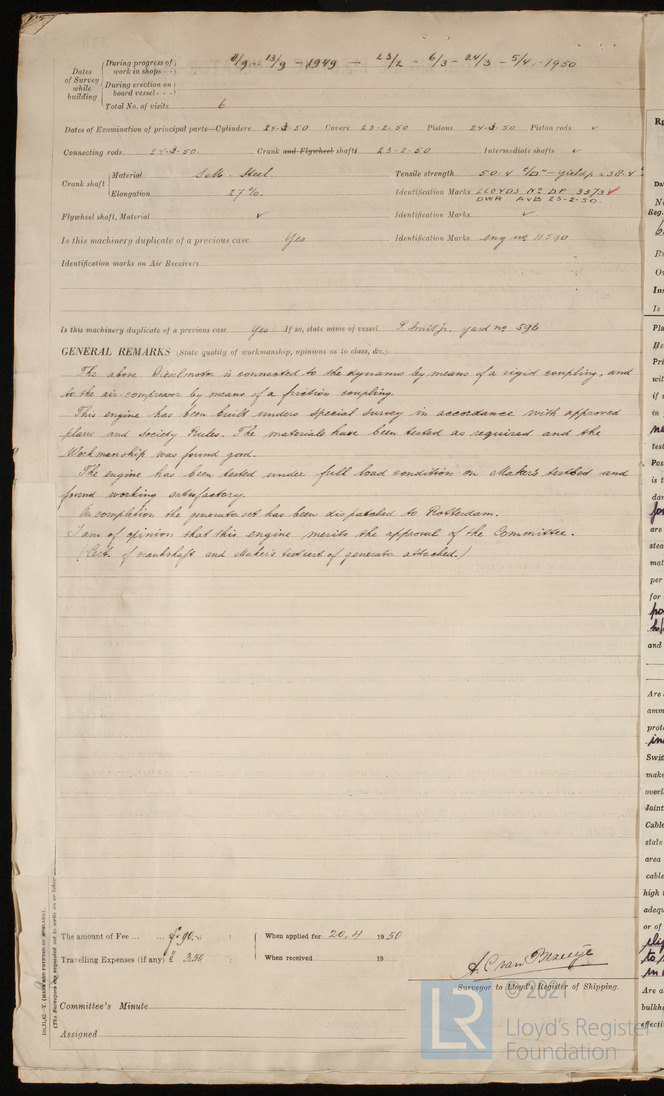 Dates of Survey while building
During progress of work in shops - - 9/9 - 13/9 - 1949 - 23/2 - 6/3 - 24/3 - 5/4 - 1950
During erection on board vessel - - -
Total No. of visits 6
Dates of Examination of principal parts—Cylinders 24-3-50 Covers 23-2-50 Pistons 24-3-50 Piston rods ✓
Connecting rods 24-3-50. Crank and Flywheel shafts 23-2-50 Intermediate shafts ✓
Crank shaft Material S.M. Steel Tensile strength 50.4 - yieldp. = 38.4
Elongation 27%. Identification Marks LLOYDS No DF 3373
DWR AvB 23-2-50.
Flywheel shaft, Material ✓ Identification Marks ✓
Is this machinery duplicate of a previous case Yes Identification Marks eng no 11590
Identification marks on Air Receivers
Is this machinery duplicate of a previous case Yes If so, state name of vessel P. Smit Jr. yard no 596
GENERAL REMARKS (State quality of workmanship, opinions as to class, &c.)
The above Dieselmotor is connected to the dynamo by means of a rigid coupling, and
to the air-compressor by means of a friction coupling.
This engine has been built under special survey in accordance with approved
plans and Society Rules. The materials have been tested as required and the
Workmanship was found good.
The engine has been tested under full load condition on Maker's testbed and
found working satisfactory.
On completion the generator set has been dispatched to Rotterdam.
I am of opinion that this engine merits the approval of the Committee.
(Cert. of crankshaft and Maker's testcert of generator attached.)
The amount of Fee ... ... f. 90.- : When applied for 20.4 1950
Travelling Expenses (if any) £ 3.50 : When received 19
A. C. van
Surveyor to Lloyd's Register of Shipping.
Committee's Minute
Assigned
(The Surveyors are requested not to write on or below
LR © 2021
Lloyd's Register
Foundation